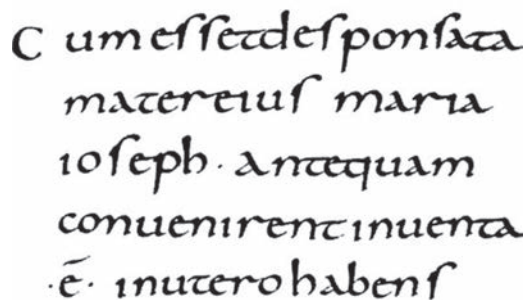 C um eſſetdeſponſata
matereiuſ maria
ioſeph · antequam
conuenirent inuenta
· ē · inutero habenſ